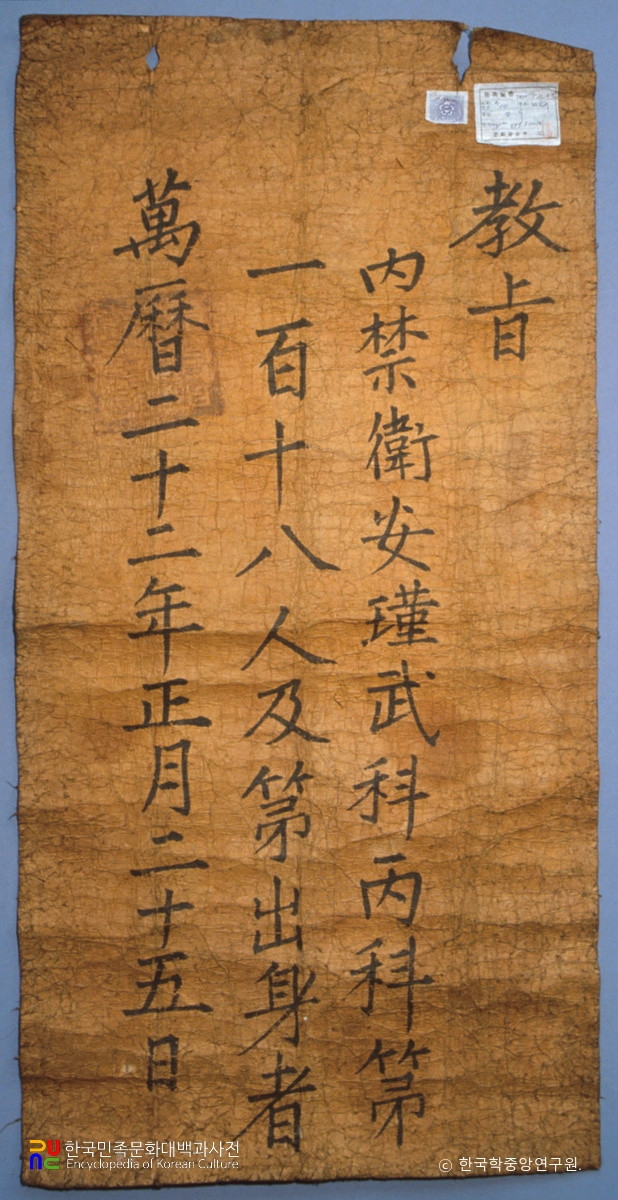 教旨
内禁衛安瑾武科丙科第
一百十八人及第出身者
萬曆二十二年正月二十五日
한국민족문화대백과사전
Encyclopedia of Korean Culture
© 한국학중앙연구원.